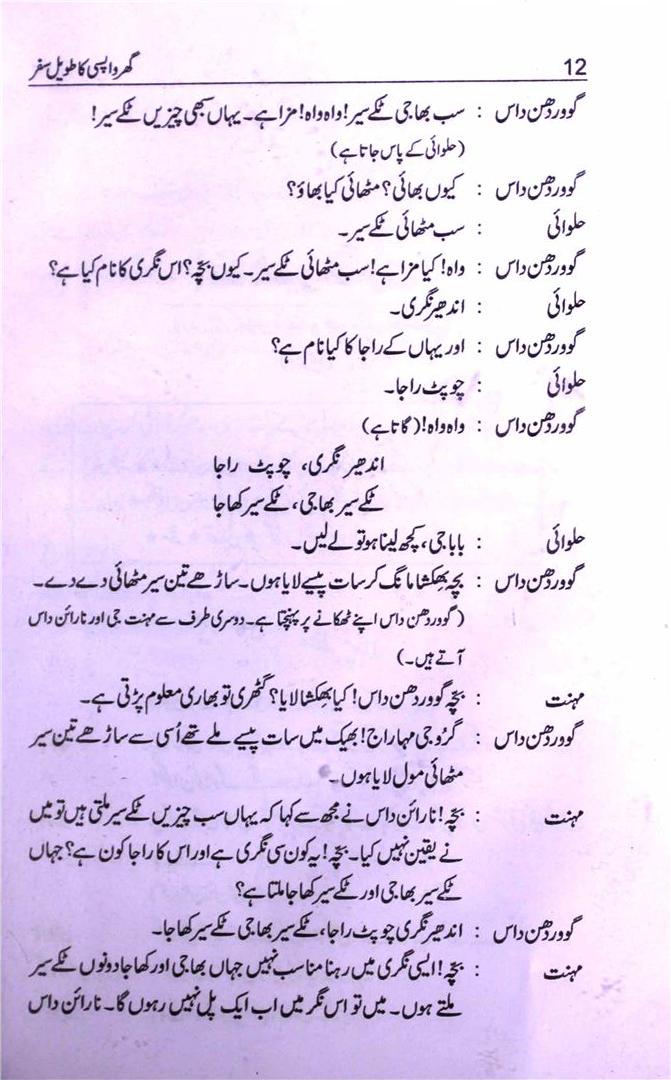 12 گھر واپسی کا طویل سفر
گووردھن داس : سب بھاجی ٹکے سیر! واہ واہ! مزا ہے۔ یہاں سبھی چیزیں ٹکے سیر!
(حلوائی کے پاس جاتا ہے)
گووردھن داس : کیوں بھائی؟ مٹھائی کیا بھاؤ؟
حلوائی : سب مٹھائی ٹکے سیر۔
گووردھن داس : واہ! کیا مزا ہے! سب مٹھائی ٹکے سیر۔ کیوں بچہ؟ اس نگری کا نام کیا ہے؟
حلوائی : اندھیر نگری۔
گووردھن داس : اور یہاں کے راجا کا کیا نام ہے؟
حلوائی : چوپٹ راجا۔
گووردھن داس : واہ واہ! (گاتا ہے)
اندھیر نگری، چوپٹ راجا
ٹکے سیر بھاجی، ٹکے سیر کھاجا
حلوائی : بابا جی، کچھ لینا ہو تو لے لیں۔
گووردھن داس : بچہ بھِکشا مانگ کر سات پیسے لایا ہوں۔ ساڑھے تین سیر مٹھائی دے دے۔
(گووردھن داس اپنے ٹھکانے پر پہنچتا ہے۔ دوسری طرف سے مہنت جی اور نارائن داس
آتے ہیں۔)
مہنت : بچہ گووردھن داس! کیا بھِکشا لایا؟ گٹھری تو بھاری معلوم پڑتی ہے۔
گووردھن داس : گرُو جی مہاراج! بھیک میں سات پیسے ملے تھے اُسی سے ساڑھے تین سیر
مٹھائی مول لایا ہوں۔
مہنت : بچہ! نارائن داس نے مجھ سے کہا کہ یہاں سب چیزیں ٹکے سیر ملتی ہیں تو میں
نے یقین نہیں کیا۔ بچہ! یہ کون سی نگری ہے اور اس کا راجا کون ہے؟ جہاں
ٹکے سیر بھاجی اور ٹکے سیر کھاجا ملتا ہے؟
گووردھن داس : اندھیر نگری چوپٹ راجا، ٹکے سیر بھاجی ٹکے سیر کھاجا۔
مہنت : بچہ! ایسی نگری میں رہنا مناسب نہیں جہاں بھاجی اور کھاجا دونوں ٹکے سیر
ملتے ہوں۔ میں تو اس نگر میں اب ایک پل نہیں رہوں گا۔ نارائن داس